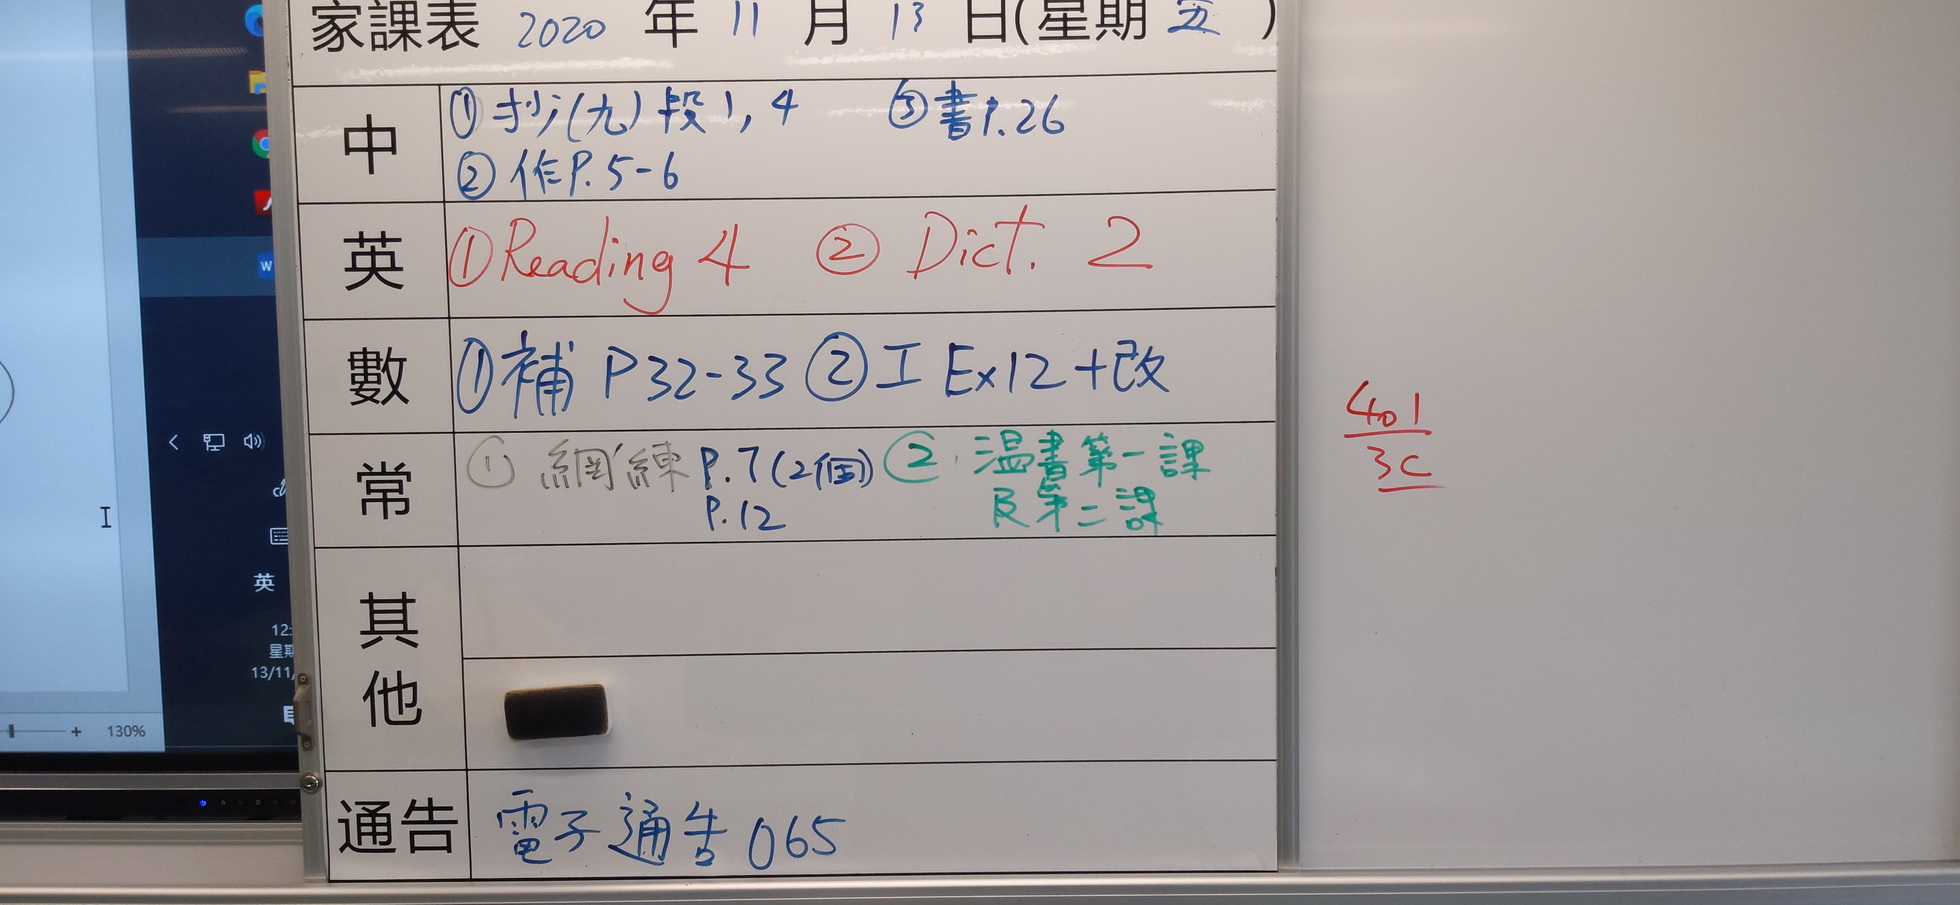 家課表 2020 年 11 月 13 日(星期 五 )
中
① 抄(九)段1, 4 ③ 書P.26
② 作P.5-6
英
① Reading 4 ② Dict. 2
數
① 補 P32-33 ② 工 Ex12+改
常
① 網練 P.7(2個) ② 温書第一課
P.12 及第二課
其
他
通告
電子通告065
401
3C
英
12:
星期
13/11/
130%